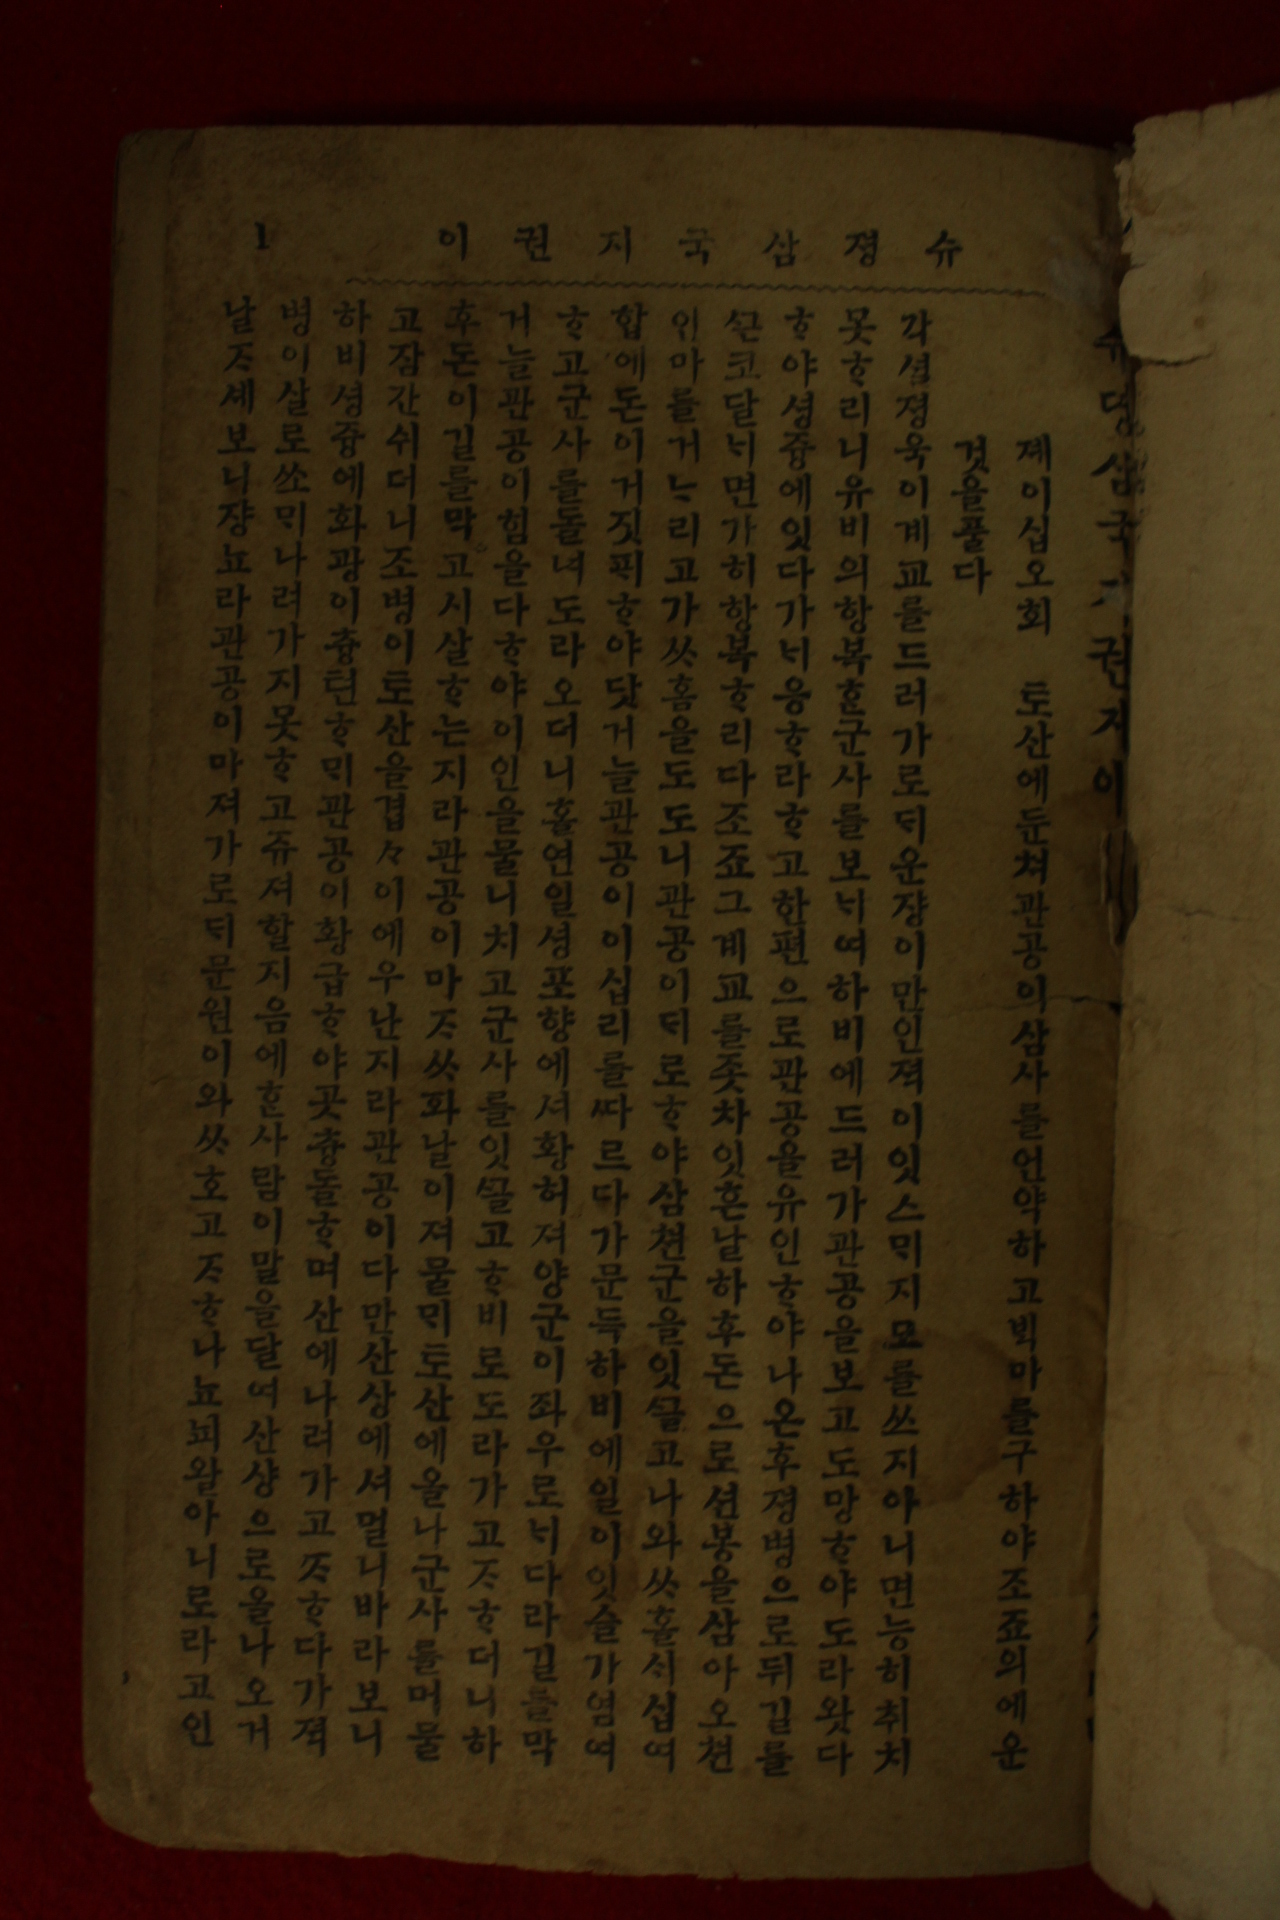 슈졍삼국지권이
1
슈뎡삼국지권지이
졔이십오회 토산에둔쳐관공이삼사를언약하고ᄇᆡᆨ마를구하야조죠의에운
것을풀다
각셜졍욱이계교를드러가로ᄃᆡ운쟝이만인젹이잇스ᄆᆡ지모를쓰지아니면능히취치
못ᄒᆞ리니유비의항복ᄒᆞᆫ군사를보ᄂᆡ여하비에드러가관공을보고도망ᄒᆞ야도라왓다
ᄒᆞ야셩즁에잇다가ᄂᆡ응ᄒᆞ라ᄒᆞ고한편으로관공을유인ᄒᆞ야나온후졍병으로뒤길를
ᄭᅳᆫ코달ᄂᆡ면가히항복ᄒᆞ리다조죠그계교를좃차잇흔날하후돈으로션봉을삼아오쳔
인마를거ᄂᆞ리고가싸홈을도도니관공이ᄃᆡ로ᄒᆞ야삼쳔군을잇ᄭᅳᆯ고나와싸홀ᄉᆡ십여
합에돈이거짓ᄑᆡᄒᆞ야닷거늘관공이이십리를ᄯᅡ르다가문득하비에일이잇슬가염여
ᄒᆞ고군사를돌녀도라오더니홀연일셩포향에셔황허져양군이좌우로ᄂᆡ다라길를막
거늘관공이힘을다ᄒᆞ야이인을물니치고군사를잇ᄭᅳᆯ고ᄒᆞ비로도라가고ᄌᆞᄒᆞ더니하
후돈이길를막고시살ᄒᆞ는지라관공이마ᄌᆞ싸화날이져물ᄆᆡ토산에올나군사를머물
고잠간쉬더니조병이토산을겹々이에우난지라관공이다만산상에셔멀니바라보니
하비셩즁에화광이츙텬ᄒᆞᄆᆡ관공이황급ᄒᆞ야곳츙돌ᄒᆞ며산에나려가고ᄌᆞᄒᆞ다가젹
병이살로쏘ᄆᆡ나려가지못ᄒᆞ고쥬져할지음에ᄒᆞᆫ사람이말을달여산샹으로올나오거
날ᄌᆞ셰보니쟝뇨라관공이마져가로ᄃᆡ문원이와싸호고ᄌᆞᄒᆞ나뇨뇌왈아니로라고인